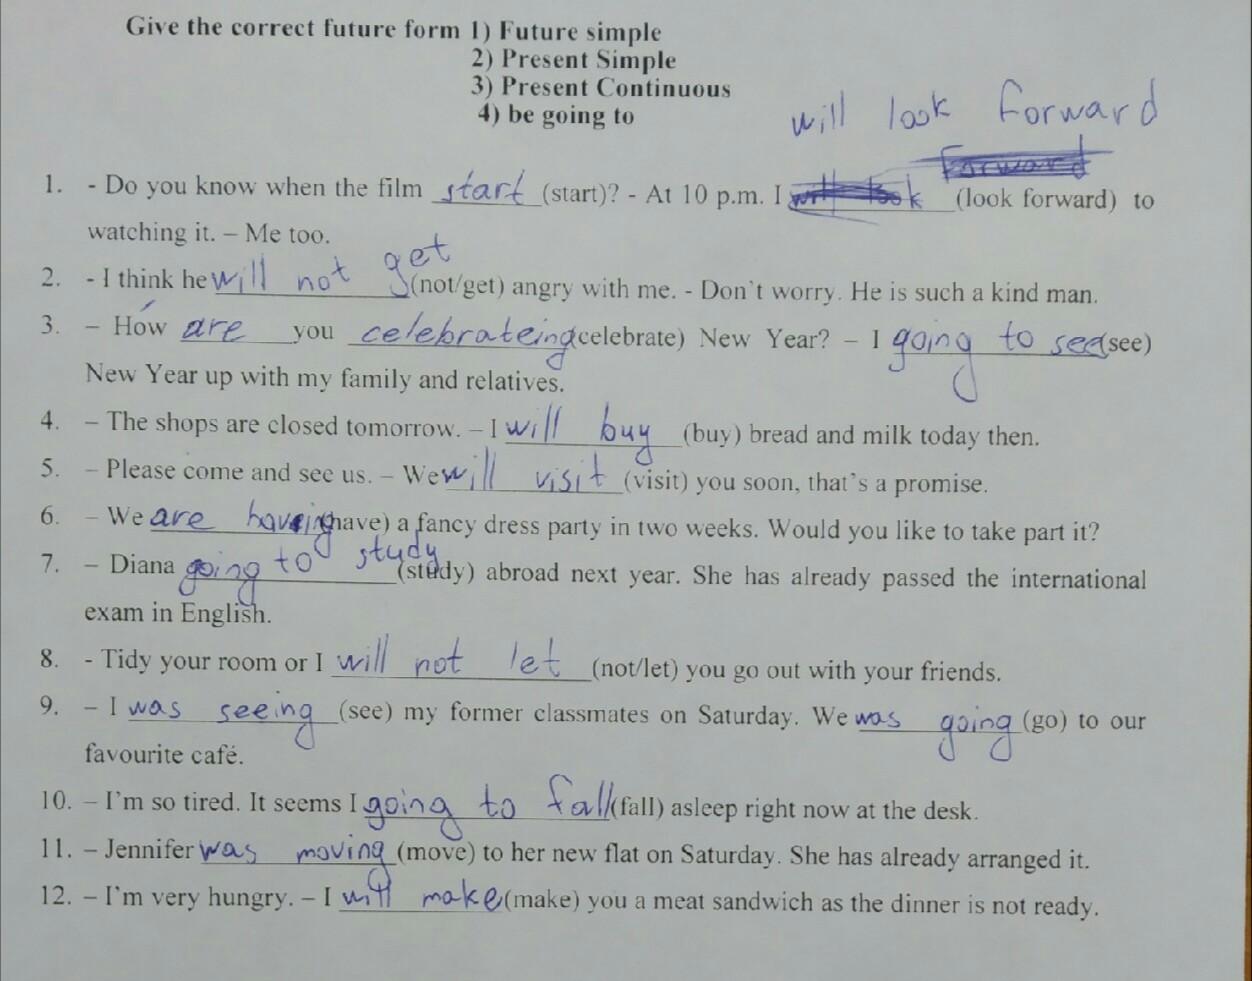 Give the correct future form 1) Future simple
2) Present Simple
3) Present Continuous
4) be going to
will look forward
forward
1. - Do you know when the film start (start)? - At 10 p.m. I will look (look forward) to
watching it. – Me too.
2. - I think he will not get (not/get) angry with me. - Don't worry. He is such a kind man.
3. – How are you celebrateing (celebrate) New Year? – I going to see (see)
New Year up with my family and relatives.
4. – The shops are closed tomorrow. – I will buy (buy) bread and milk today then.
5. – Please come and see us. – We will visit (visit) you soon, that's a promise.
6. – We are having (have) a fancy dress party in two weeks. Would you like to take part it?
7. – Diana going to study (study) abroad next year. She has already passed the international
exam in English.
8. - Tidy your room or I will not let (not/let) you go out with your friends.
9. – I was seeing (see) my former classmates on Saturday. We was going (go) to our
favourite café.
10. – I'm so tired. It seems I going to fall (fall) asleep right now at the desk.
11. – Jennifer was moving (move) to her new flat on Saturday. She has already arranged it.
12. – I'm very hungry. – I will make (make) you a meat sandwich as the dinner is not ready.